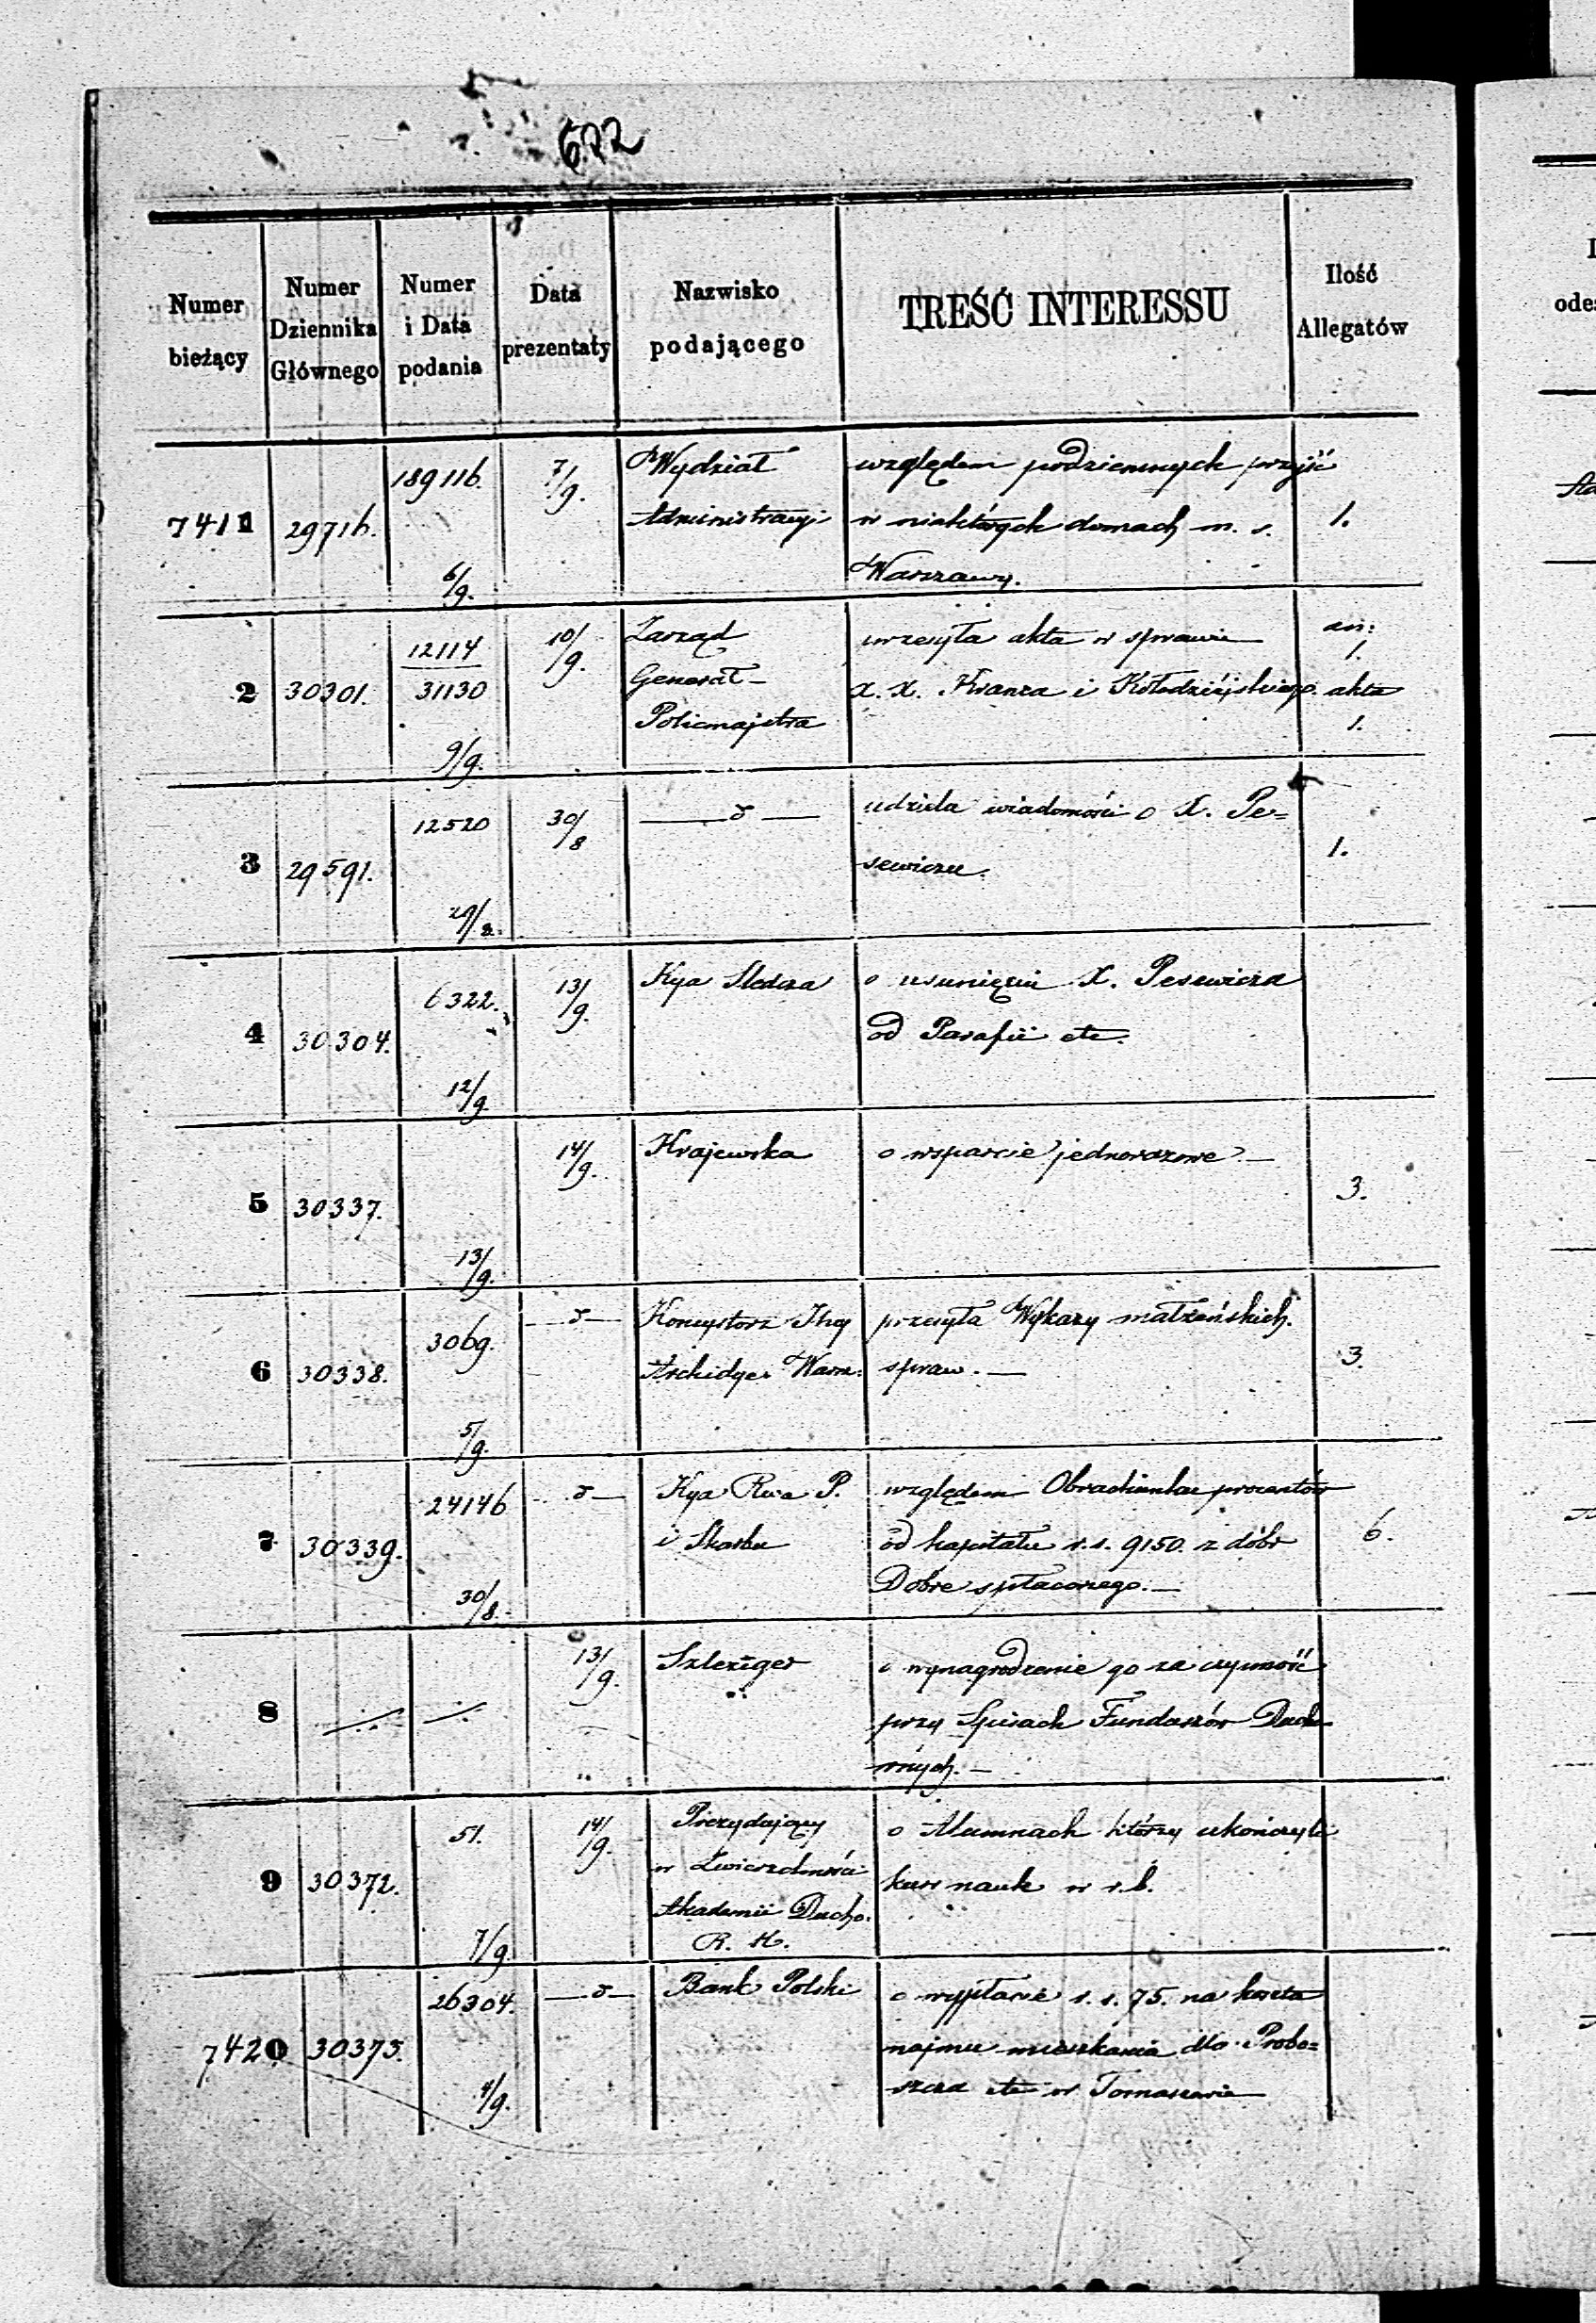 622
Numer bieżący
Numer Dziennika Głównego
Numer i Data podania
Data prezentaty
Nazwisko podającego
TREŚĆ INTERESSU
Ilość Allegatów
7411 29716. 189116. 6/9. 7/9.
Wydział
Administracyi
względem podziemnych przejść
w niektórych domach m. s.
Warszawy.
1.
2 30301. 12114 31130 9/9. 10/9.
Zarząd
Generał-
Policmajstra
przesyła akta w sprawie
X. X. Kranza i Kołodziejskiego.
an:
1.
akta
1.
3 29591. 12520 29/8. 30/8
—— d ——
udziela wiadomości o X. Pe=
sewiczu.
1.
4 30304. 6322. 12/9 13/9.
Kya Śledcza
o usunięciu X. Pesewicza
od Parafii etc.
5 30337. 13/9. 14/9.
Krajewska
o wsparcie jednorazowe. —
3.
6 30338. 3069. 5/9. — d —
Konsystorz
Archidyec Warsz:
przesyła Wykazy małżeńskich
spraw. —
3.
7 30339. 24146 30/8. — d —
Kya P.
i Skarbu
względem Obrachunku procentów
od kapitału r. s. 9150. z dóbr
Dobre spłaconego. —
6.
8 13/9.
Szleziger
o wynagrodzenie go za czynność
przy Spisach Funduszów Duch
wnych. —
9 30372. 51. 7/9. 14/9.
Prezydujący
w Zwierzchności
Akademii Ducho.
R. K.
o Alumnach którzy ukończyli
kurs nauk w r. b.
7420 30375. 26304. 4/9. — d —
Bank Polski
o wypłacie r. s. 75. na koszta
najmu mieszkania dla Probo=
szcza etc w Tomaszowie